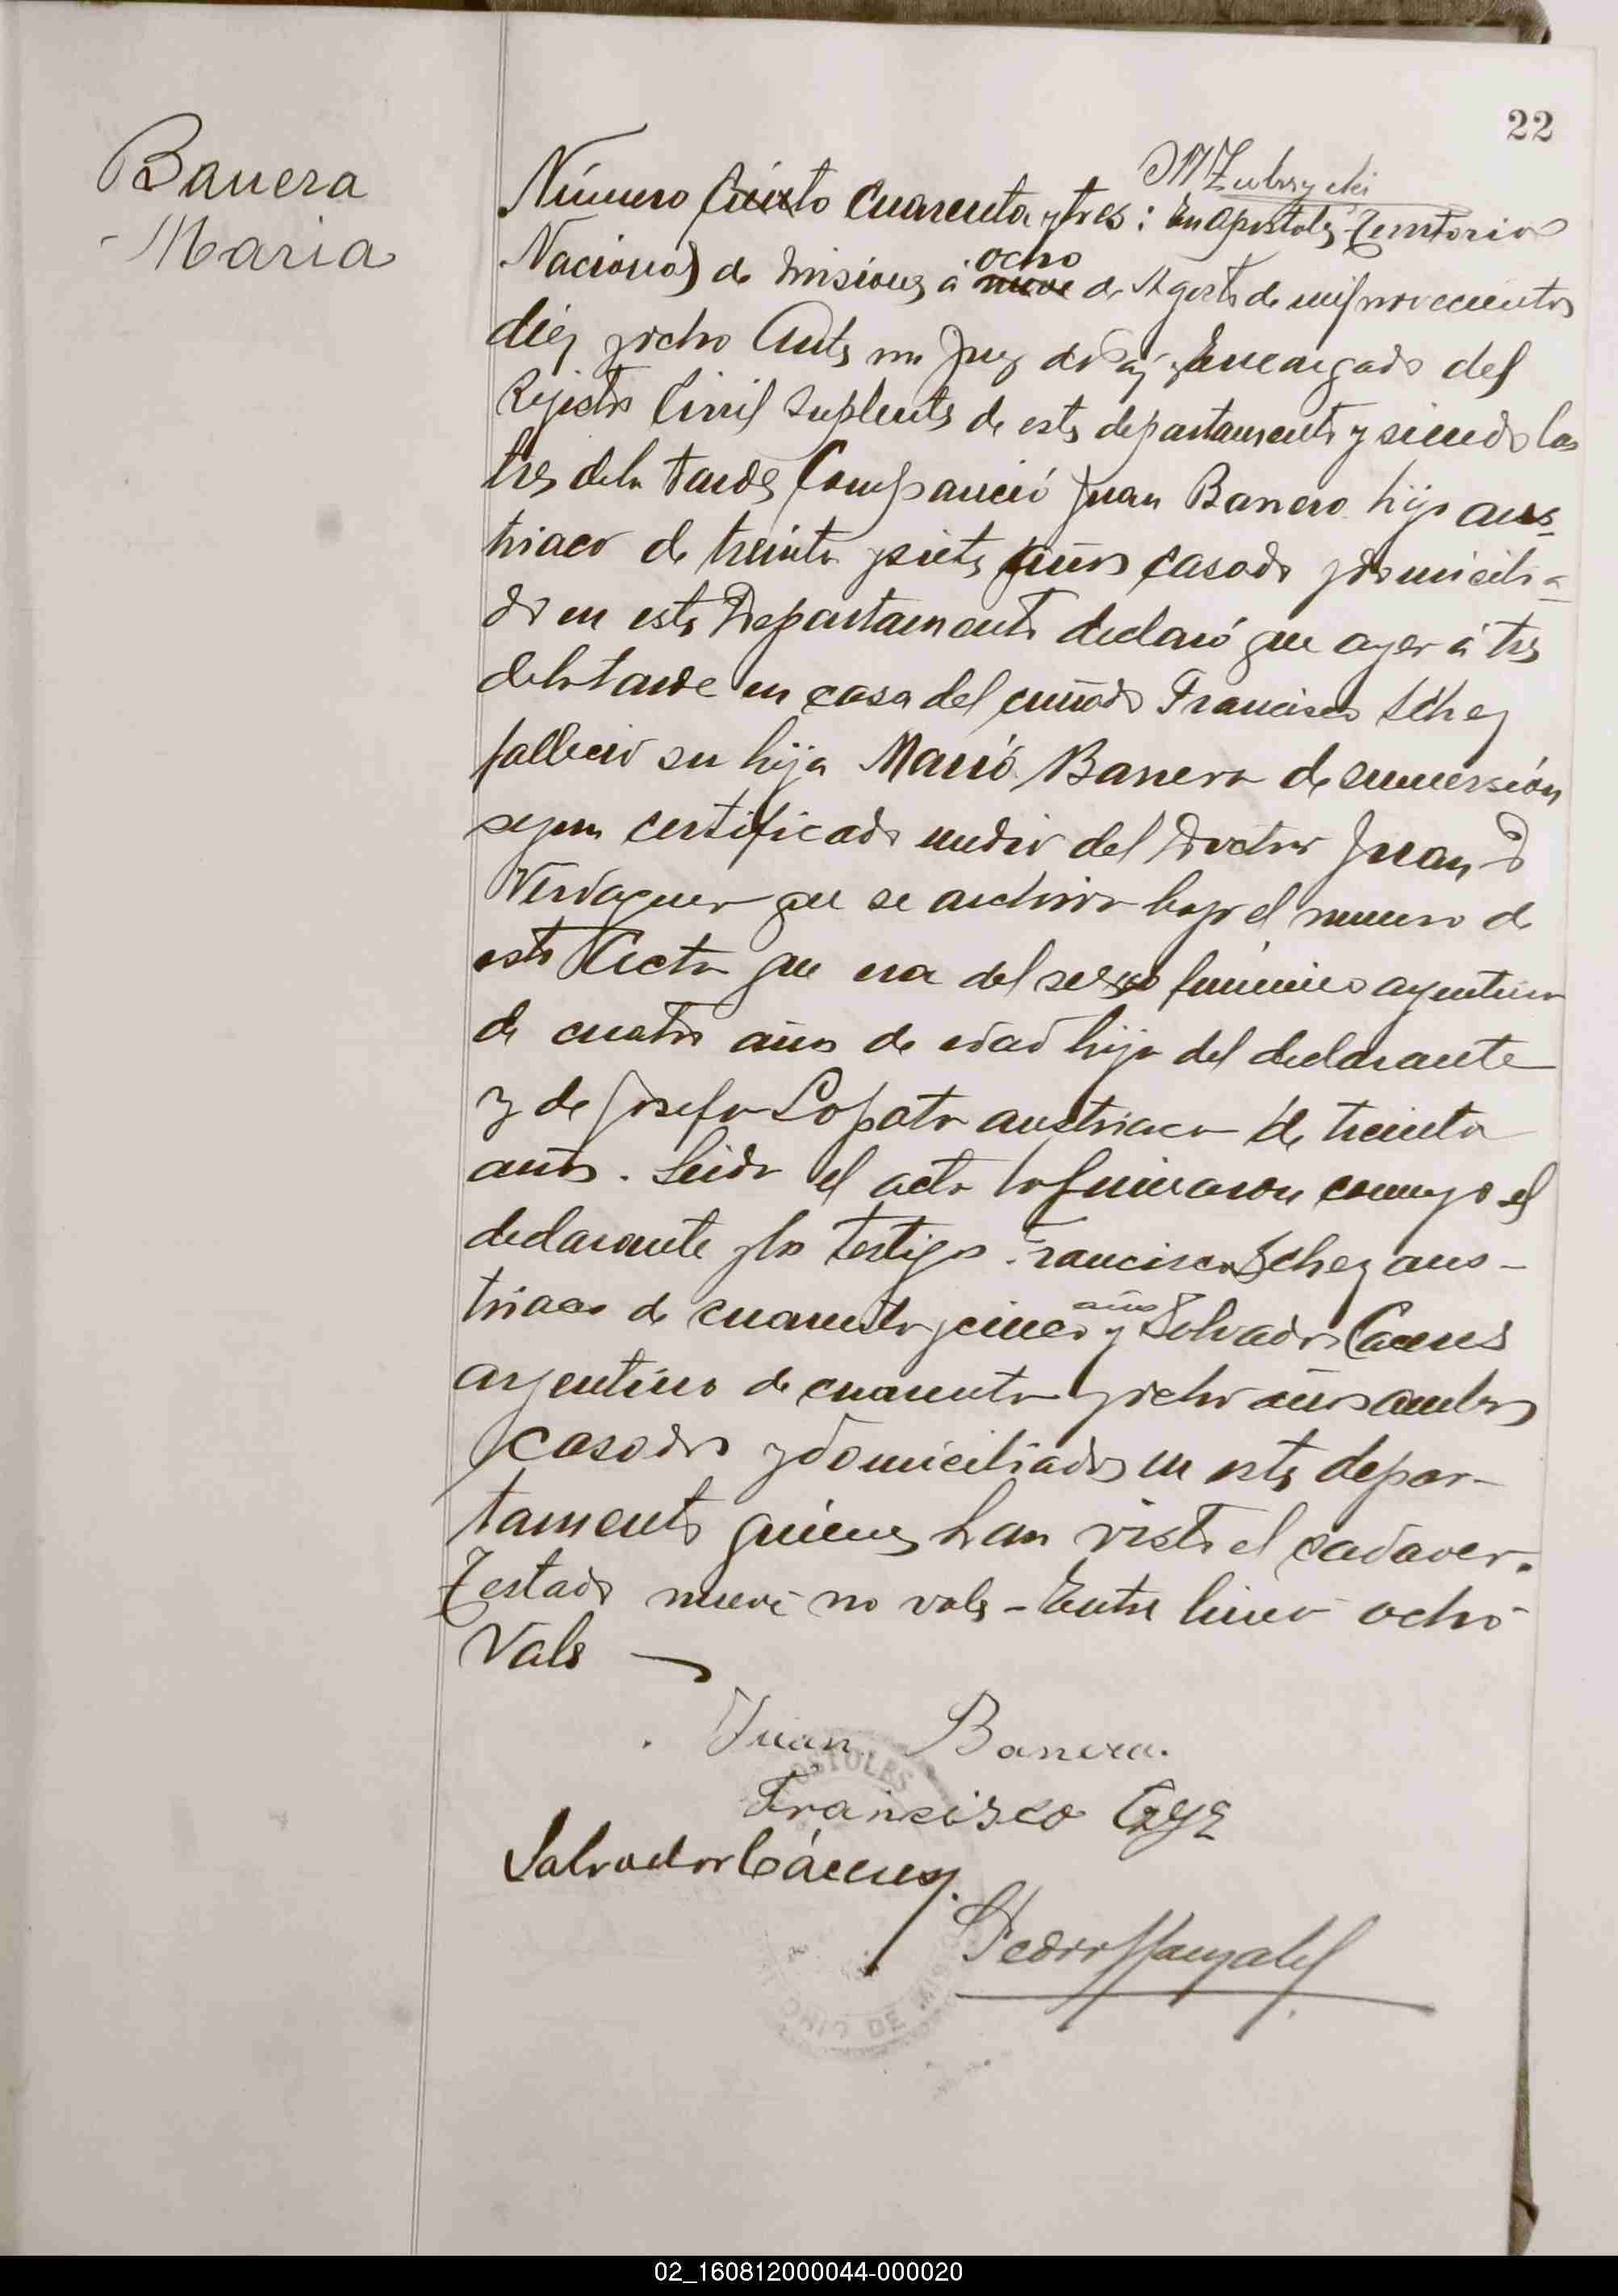 22
Banera
Maria
Número Ciento Cuarenta y tres: En Apostoles Territorio
Nacional de Misiones á ocho nueve de Agosto de mil novecientos
diez y ocho Ante mi Juez de Paz y Encargado del
Rejistro Civil Suplente de este departamento y siendo las
tres de la tarde Compareció Juan Banera hijo aus-
triaco de treinta y siete años casado y domicilia-
do en este Departamento declaró que ayer á tres
de la tarde en casa del cuñado Francisco
fallecio su hija Maria Banera de inmersión
segun certificado medico del Doctor Juan D
Verdaguer que se archiva bajo el numero de
esta Acta que era del sexo femenino argentina
de cuatro años de edad hija del declarante
y de Josefa Lopata austriaca de treinta
años. Leida el acta la firmaron conmigo el
declarante y los testigos Francisco aus-
triaco de cuarenta y cinco años y Salvador Caceres
argentino de cuarenta y ocho años ambos
casados y domiciliados en este depar-
tamento quienes han visto el cadaver.
Testado nueve no vale - Entre linea ocho
Vale
Juan Banera.
Francisco
Salvador Cáceres.
Pedro